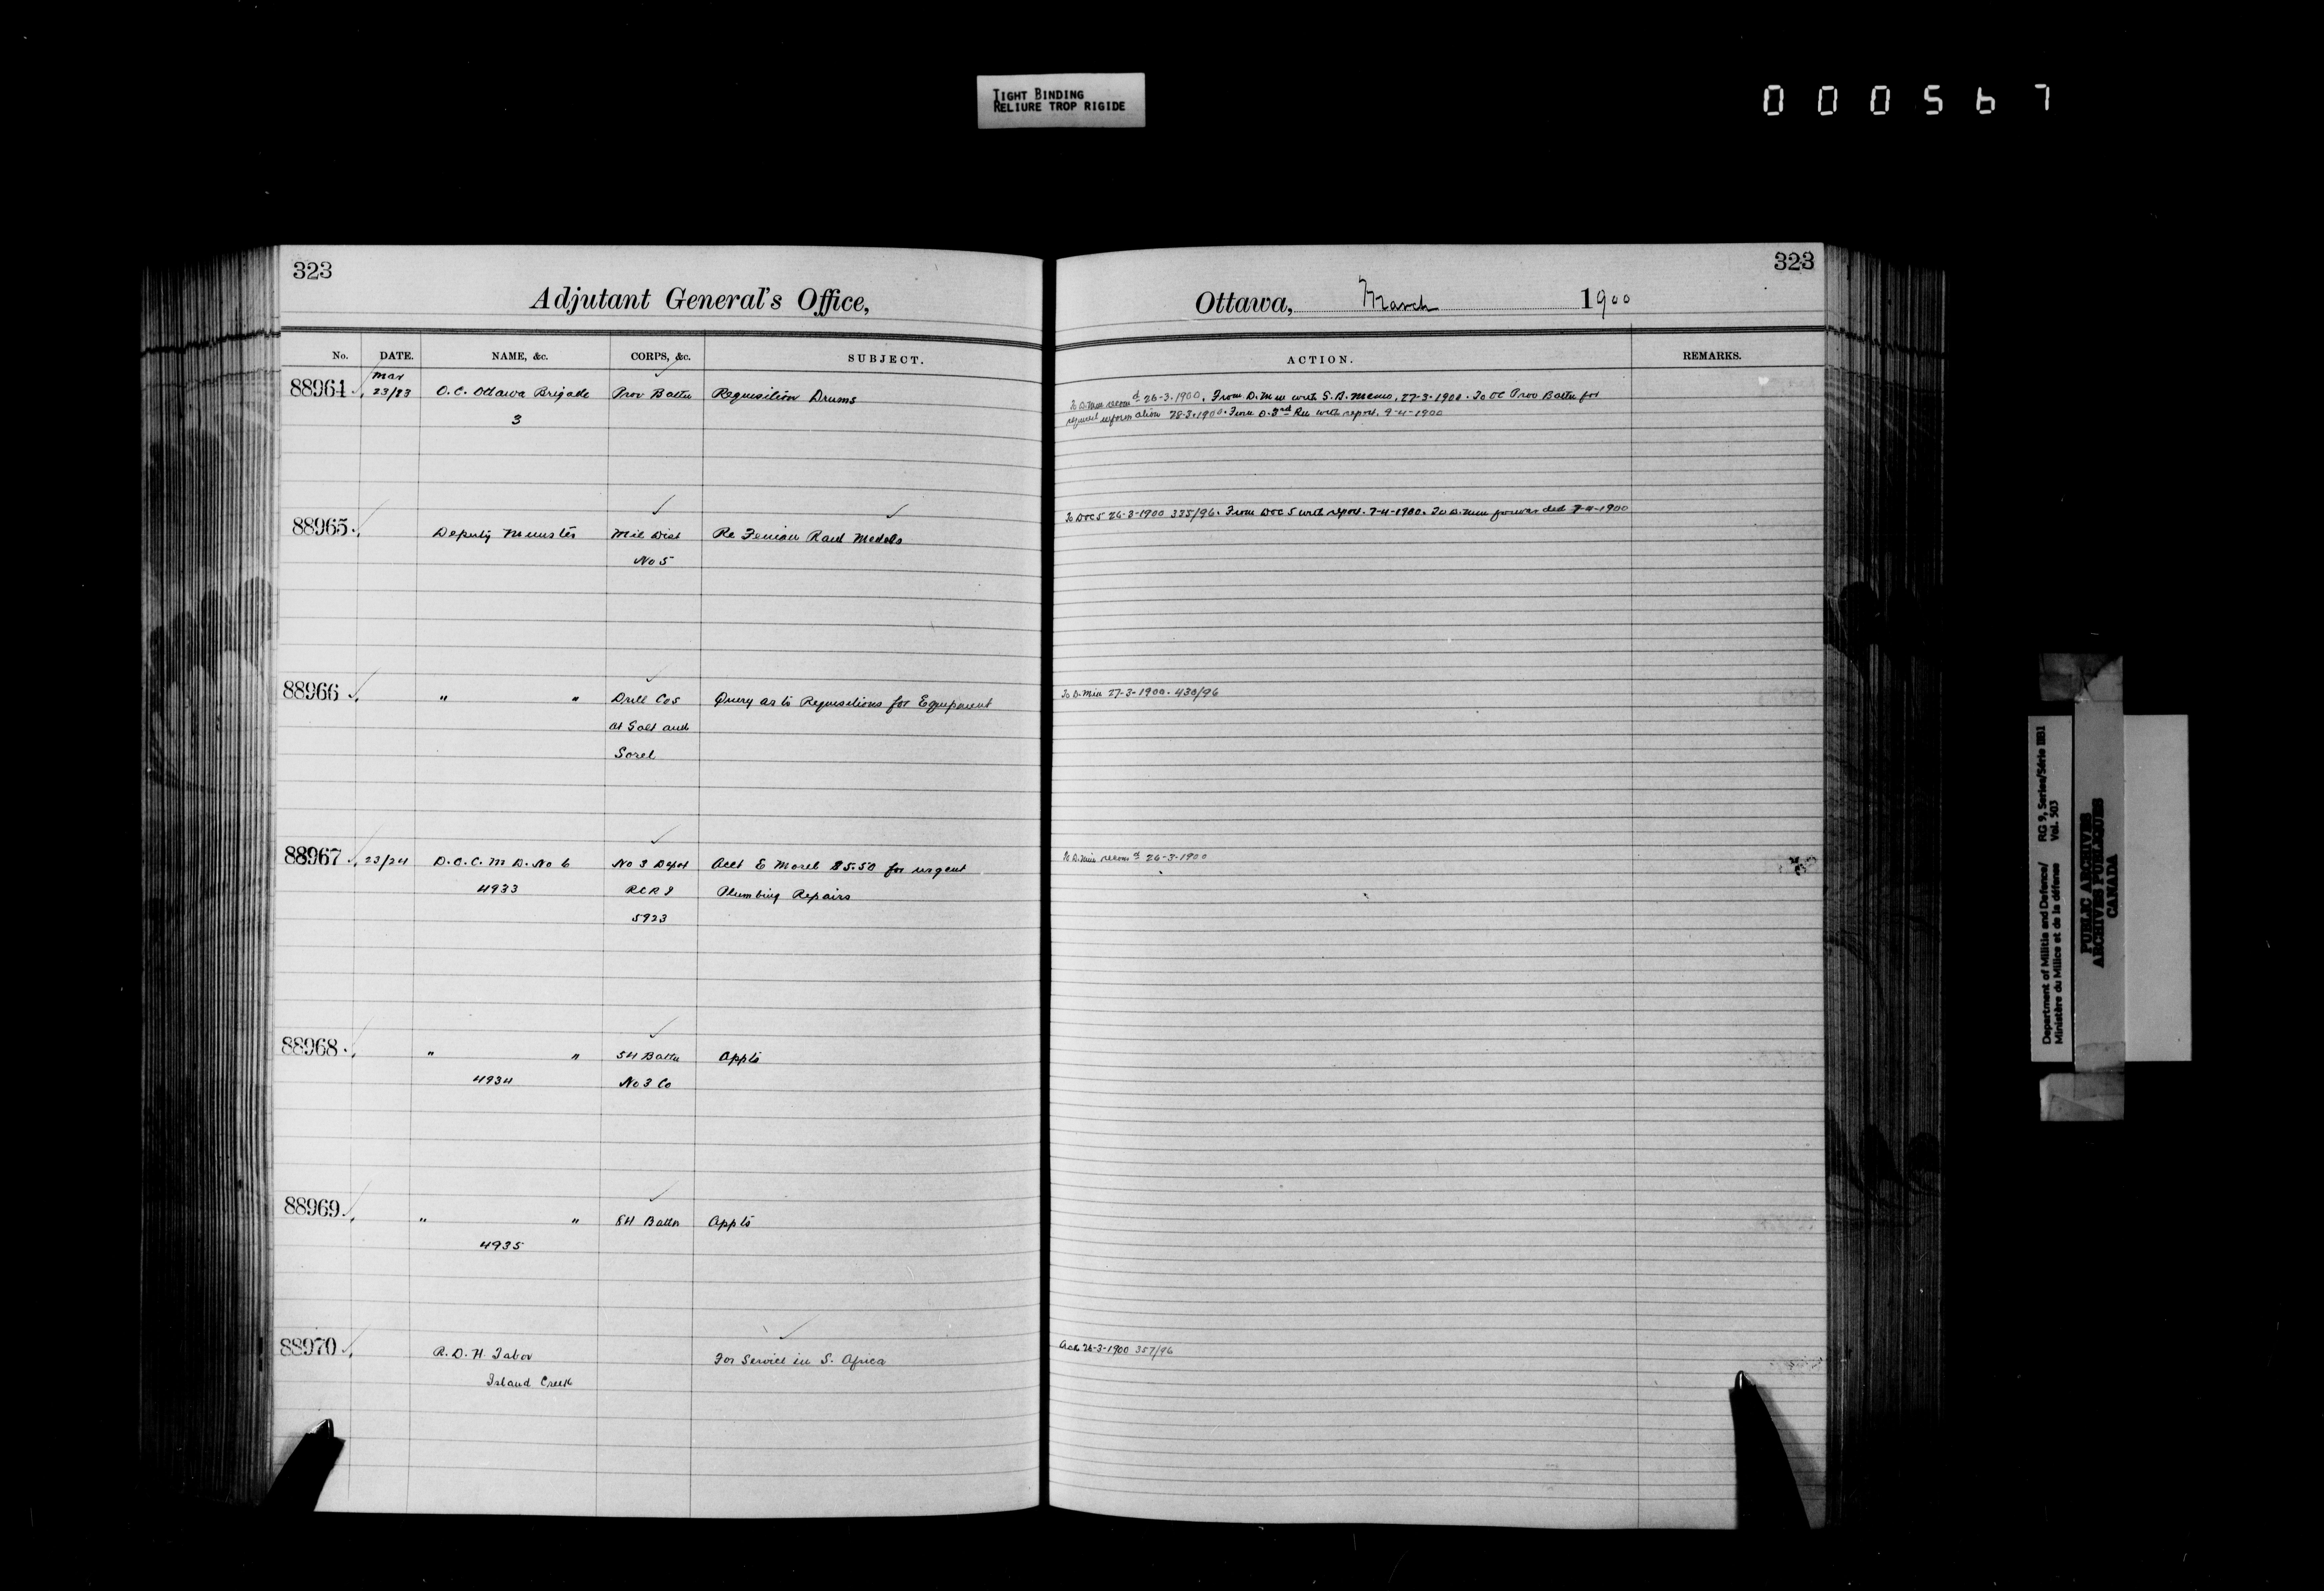 TIGHT BINDING
RELIURE TROP RIGIDE
000567
323
Adjutant General's Office,
No. DATE. NAME, &c. CORPS, &c. SUBJECT.
Mar
88964 23/23 O.C. Ottawa Brigade Prov Battn Requisition Drums
3
88965 Deputy Minister Mil Dist Re Fenian Raid Medals
No 5
88966 " " Drill Cos Query as to Requisitions for Equipment
at Galt and
Sorel
88967 23/24 D.O.C. M D. No 6 No 3 Depot Acct E Morel $5.50 for urgent
4933 RCRI Plumbing Repairs
5923
88968 " " 54 Battn Appts
4934 No 3 Co
88969 " " 84 Battn Appts
4935
88970 R.D.H. Tabor For Service in S. Africa
Island Creek
323
Ottawa, March 1900
ACTION. REMARKS.
To D. Min recomd 26-3-1900. From D. Min with S.B. Memo, 27-3-1900. To OC Prov Battn for
required information 28-3-1900. From with report. 9-4-1900
To DOC 5 26-3-1900 335/96. From DOC 5 with report. 7-4-1900. To D. Min forwarded 7-4-1900
To D. Min 27-3-1900. 430/96
To D. Min recomd 26-3-1900
Ack 26-3-1900 357/96
Department of Militia and Defence/ RG 9, Series/Série IIB1
Ministère du Milice et de la défense Vol. 503
PUBLIC ARCHIVES
ARCHIVES PUBLIQUES
CANADA